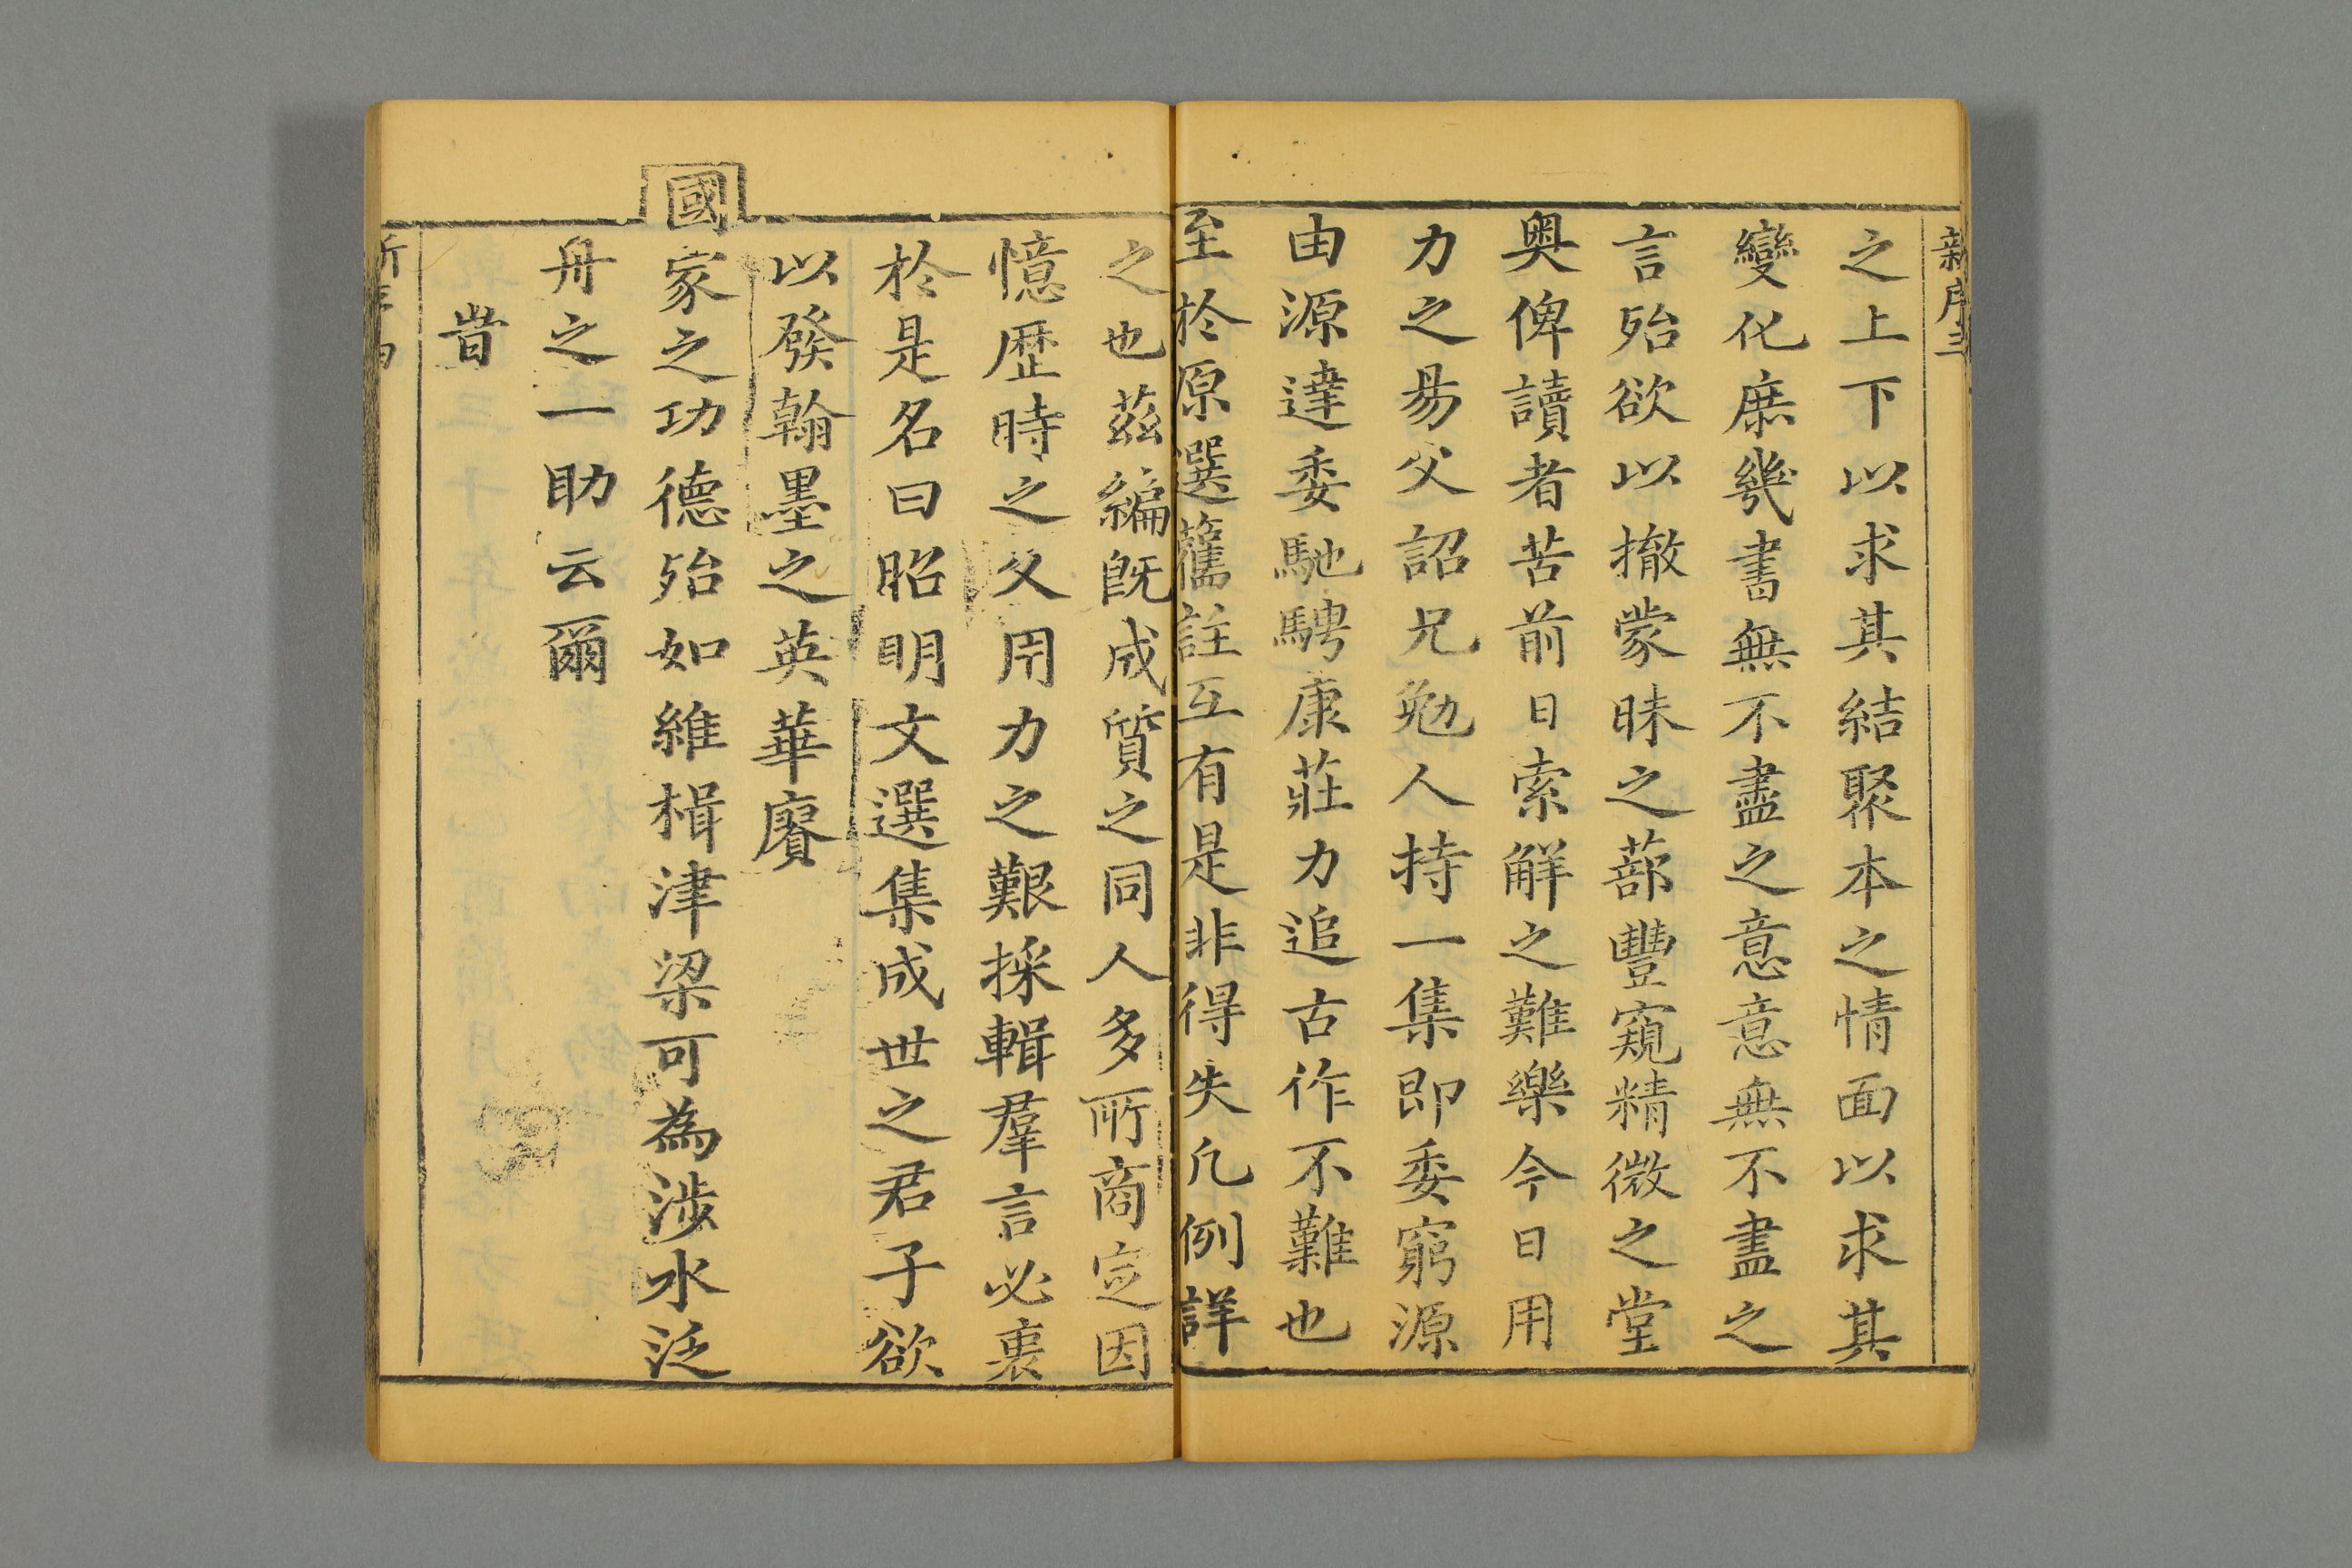 新序三
之上下以求其結聚本之情面以求其
變化庶幾書無不盡之意意無不盡之
言殆欲以撤蒙昧之蔀豐窺精微之堂
奥俾讀者苦前日索解之難樂今日用
力之易父詔兄勉人持一集即委窮源
由源達委馳騁康莊力追古作不難也
至於原選舊註互有是非得失凡例詳
之也茲編既成質之同人多所商定因
憶歷時之久用力之艱採輯羣言必衷
於是名曰昭明文選集成世之君子欲
以發翰墨之英華賡
國家之功德殆如維楫津梁可為涉水泛
舟之一助云爾
旹